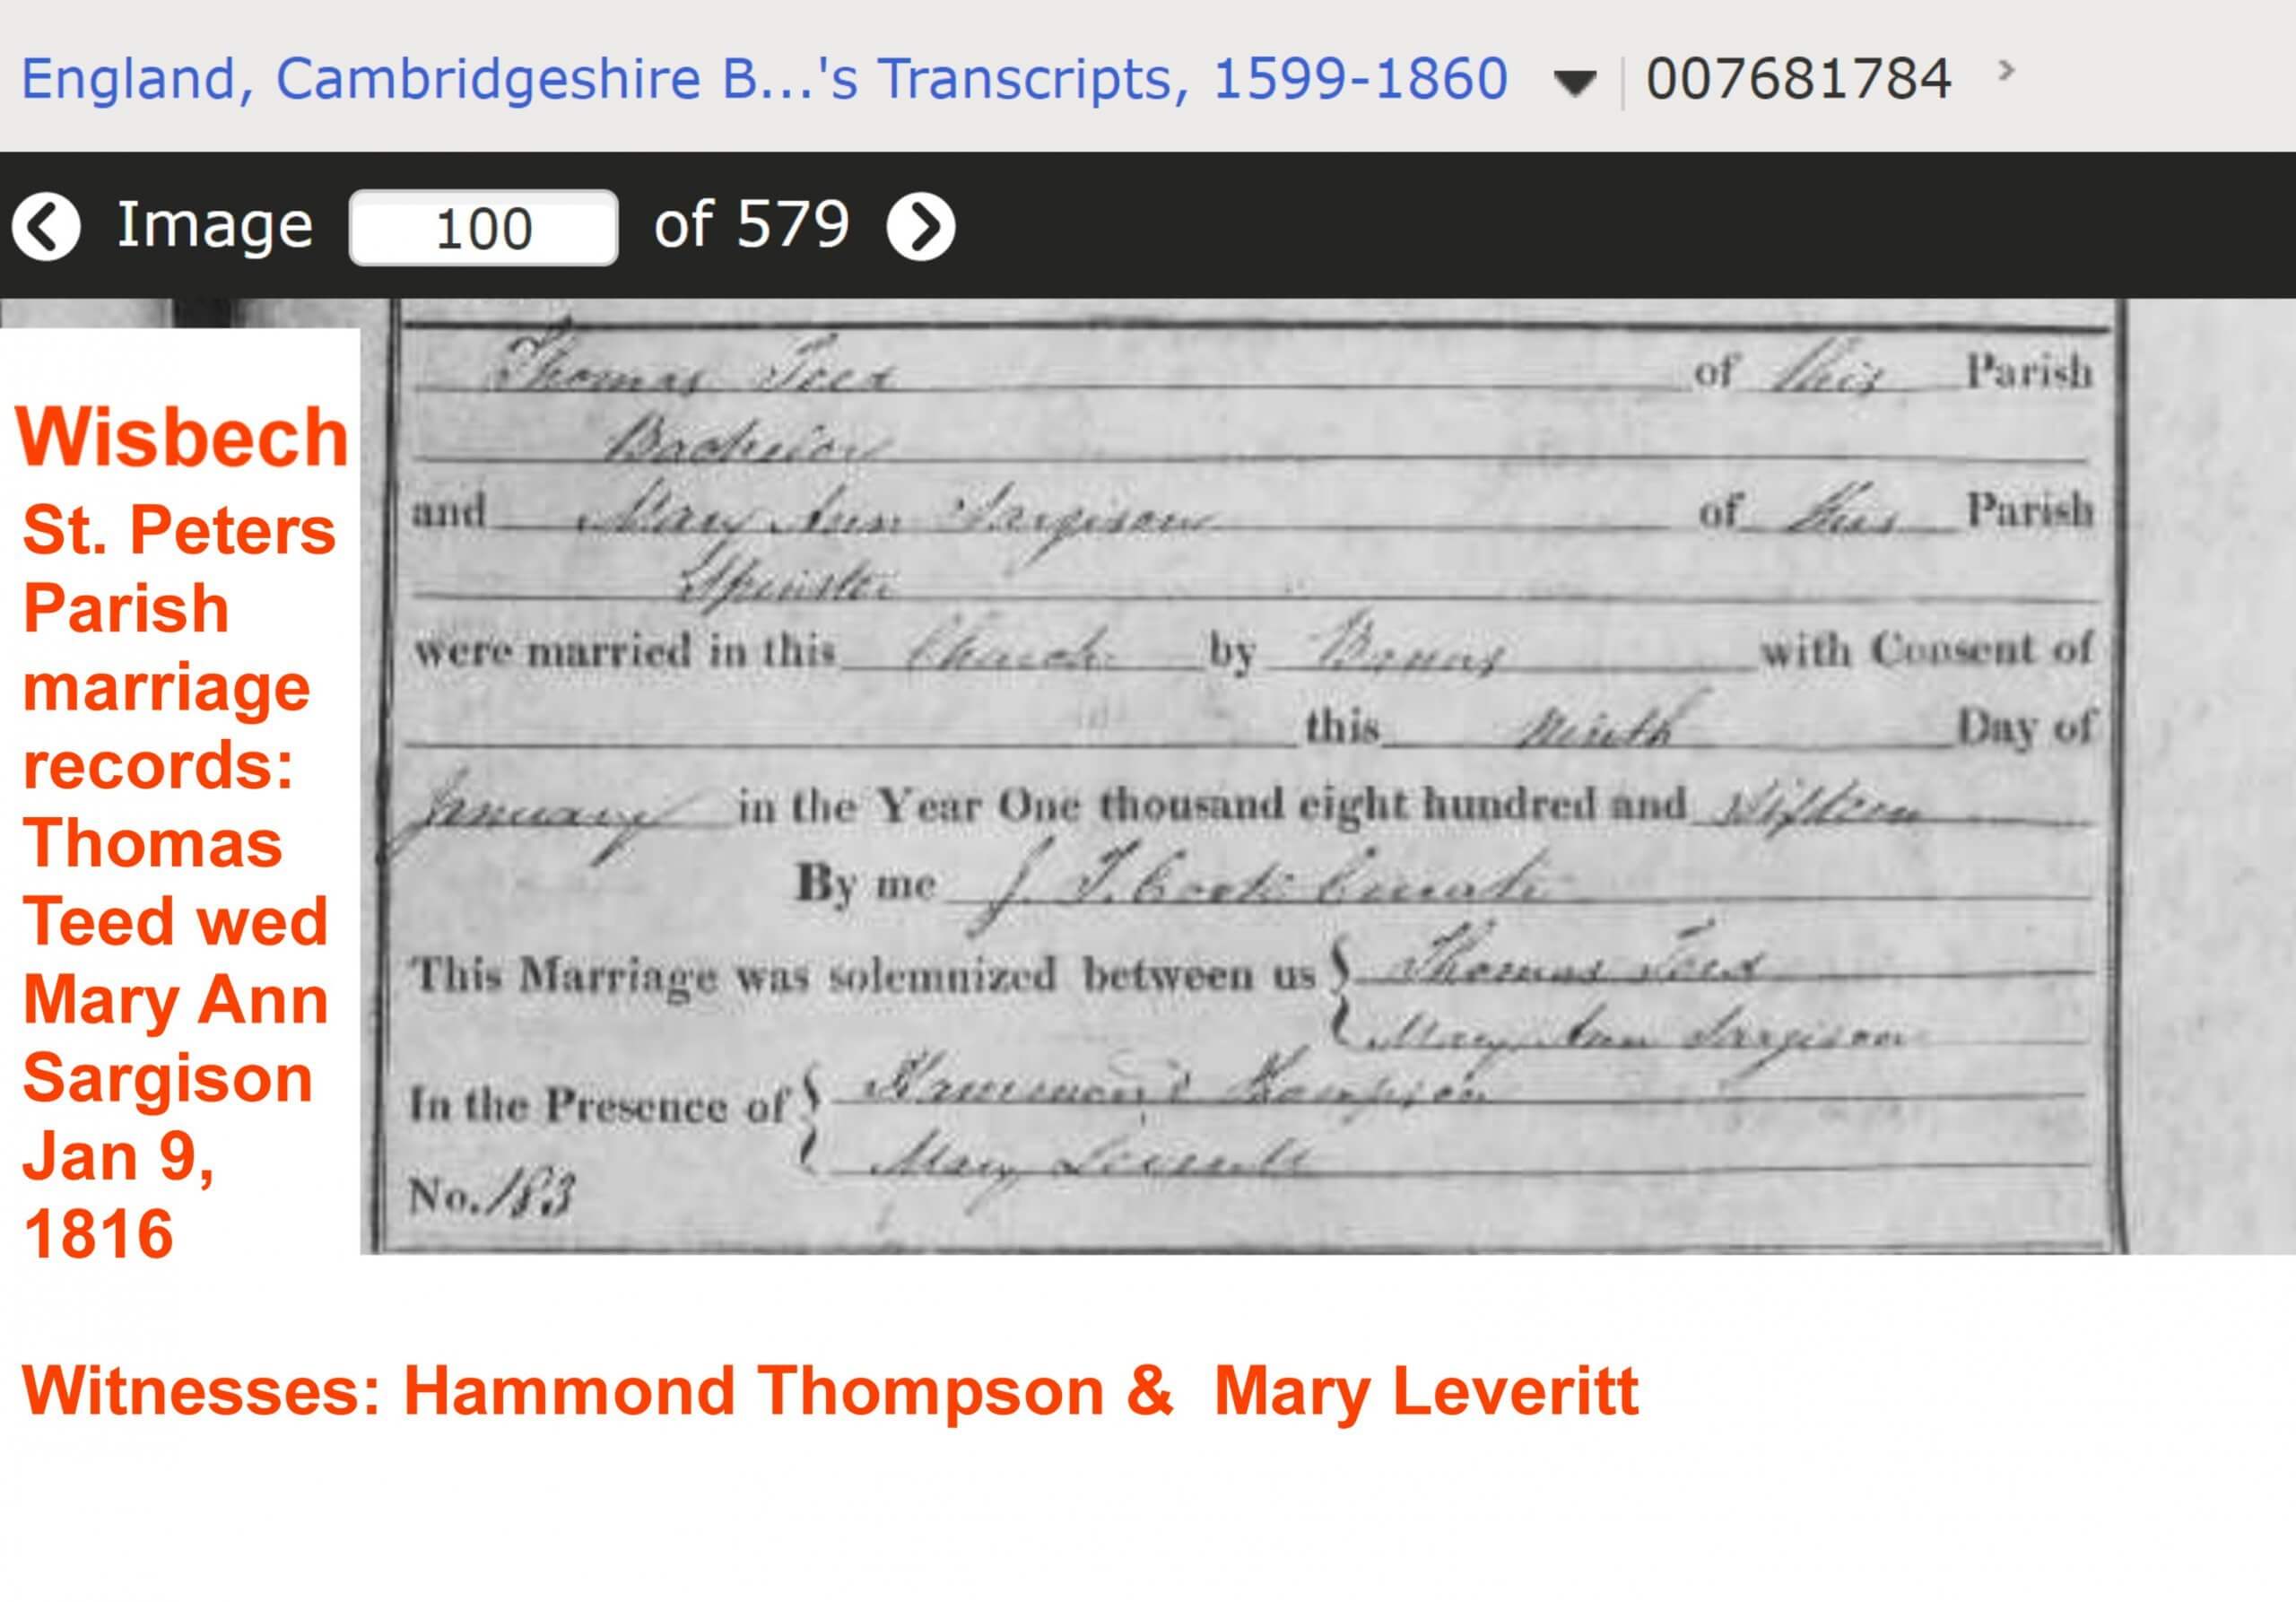 England, Cambridgeshire B...'s Transcripts, 1599-1860 007681784
Image 100 of 579
Wisbech
St. Peters
Parish
marriage
records:
Thomas
Teed wed
Mary Ann
Sargison
Jan 9,
1816
Thomas Teed of this Parish
Bachelor
and Mary Ann Sargison of this Parish
Spinster
were married in this Church by Banns with Consent of
this Ninth Day of
January in the Year One thousand eight hundred and
By me J. T. Cook Curate
This Marriage was solemnized between us Thomas Teed
Mary Ann Sargison
In the Presence of Hammond Thompson
Mary Leveritt
No. 183
Witnesses: Hammond Thompson & Mary Leveritt